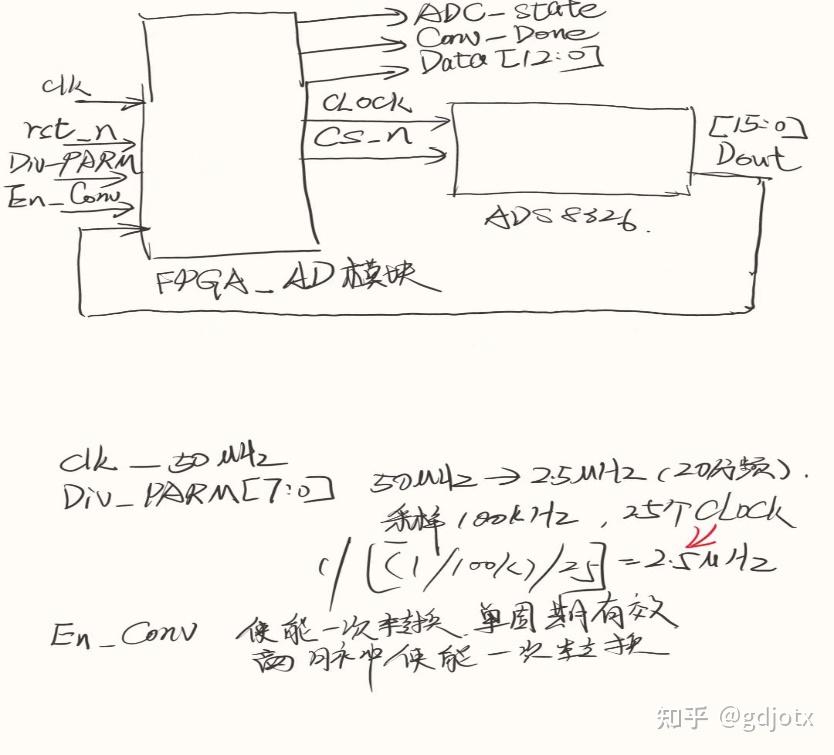 ADC-state
Conv-Done
Data [12:0]
clk
CLOCK
rst_n
CS_n
[15:0]
Div-PARM
Dout
En_Conv
ADS8326.
FPGA_AD模块
clk — 50MHz
Div_PARM[7:0] 50MHz → 2.5MHz (20分频).
采样100kHz, 25个CLOCK
1/[(1/100k)/25] = 2.5MHz
En_Conv 使能一次转换,单周期有效
高脉冲使能一次转换
知乎 @gdjotx